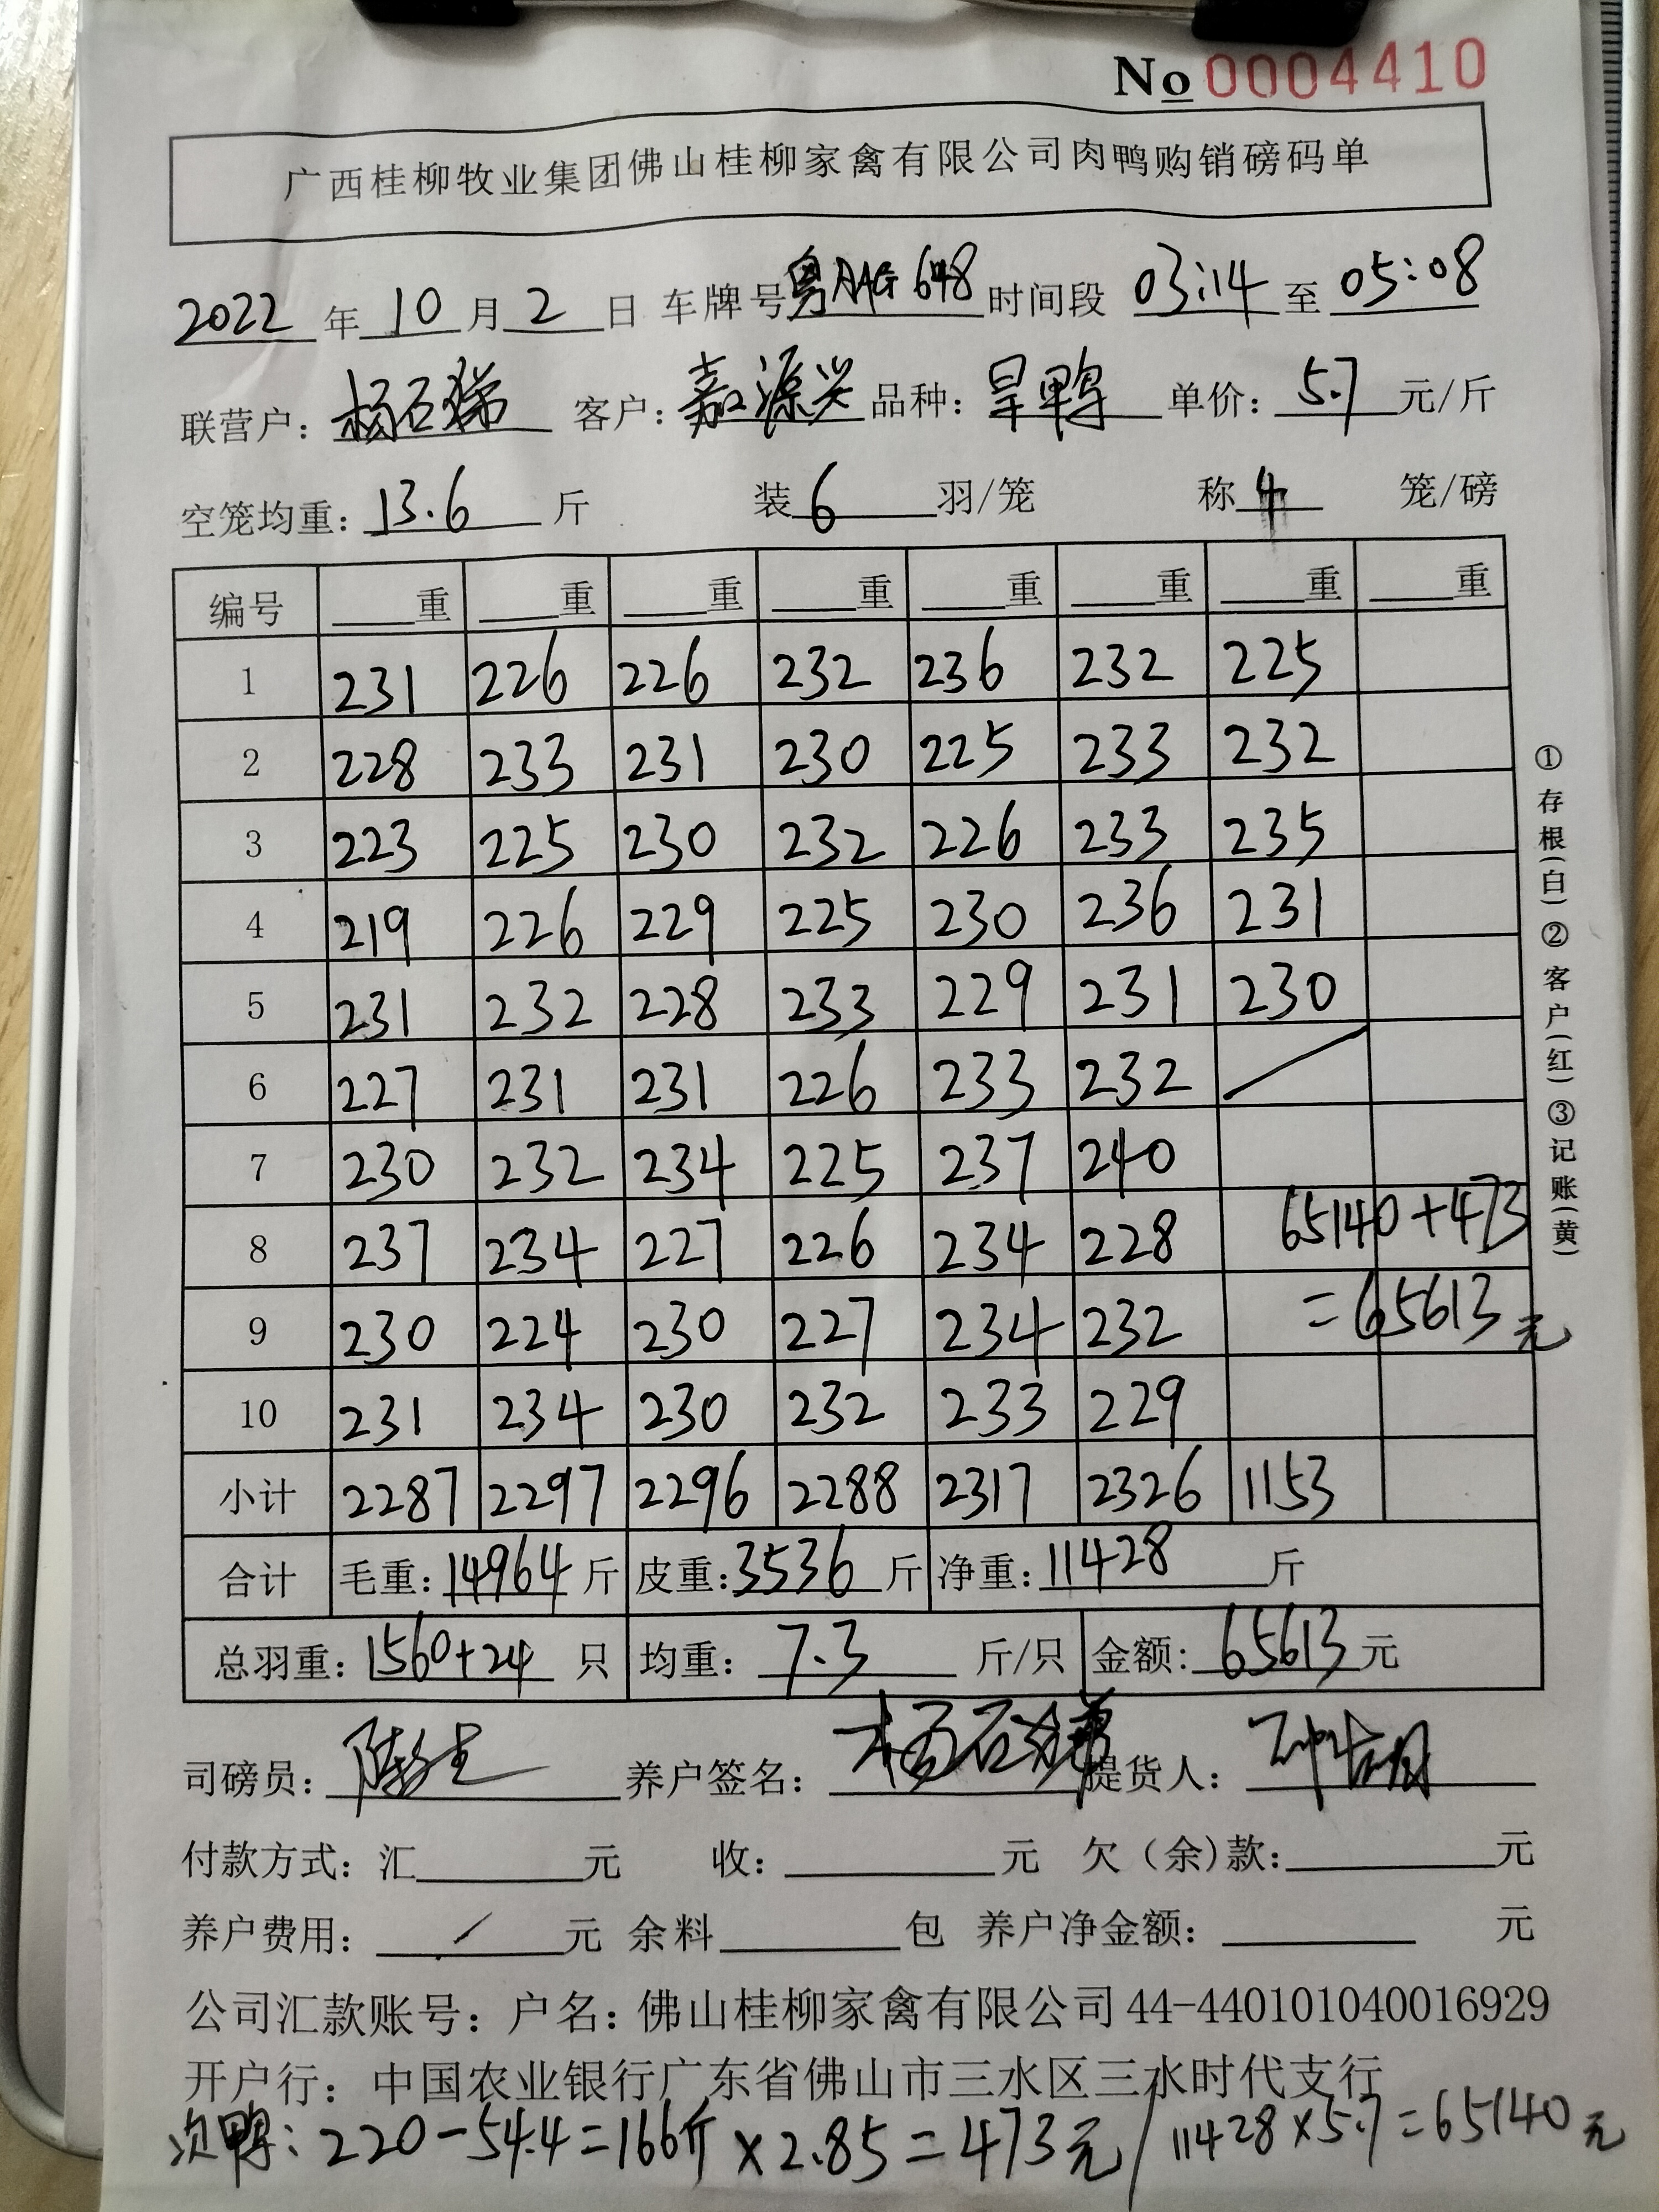 No 0004410
广西桂柳牧业集团佛山桂柳家禽有限公司肉鸭购销磅码单
2022 年 10 月 2 日 车牌号 粤AAG648 时间段 03:14 至 05:08
联营户: 杨石锑 客户: 嘉源兴 品种: 旱鸭 单价: 5.7 元/斤
空笼均重: 13.6 斤 装 6 羽/笼 称 4 笼/磅
编号 重 重 重 重 重 重 重 重
1 231 226 226 232 236 232 225
2 228 233 231 230 225 233 232
3 223 225 230 232 226 233 235
4 219 226 229 225 230 236 231
5 231 232 228 233 229 231 230
6 227 231 231 226 233 232 /
7 230 232 234 225 237 240
8 237 234 227 226 234 228 65140+473
9 230 224 230 227 234 232 =65613元
10 231 234 230 232 233 229
小计 2287 2297 2296 2288 2317 2326 1153
合计 毛重: 14964 斤 皮重: 3536 斤 净重: 11428 斤
总羽重: 1560+24 只 均重: 7.3 斤/只 金额: 65613 元
司磅员: 养户签名: 提货人:
付款方式: 汇 元 收: 元 欠(余)款: 元
养户费用: / 元 余料 包 养户净金额: 元
公司汇款账号: 户名: 佛山桂柳家禽有限公司 44-440101040016929
开户行: 中国农业银行广东省佛山市三水区三水时代支行
次鸭: 220-54.4=166斤×2.85=473元/11428×5.7=65140元
①存根(白)②客户(红)③记账(黄)